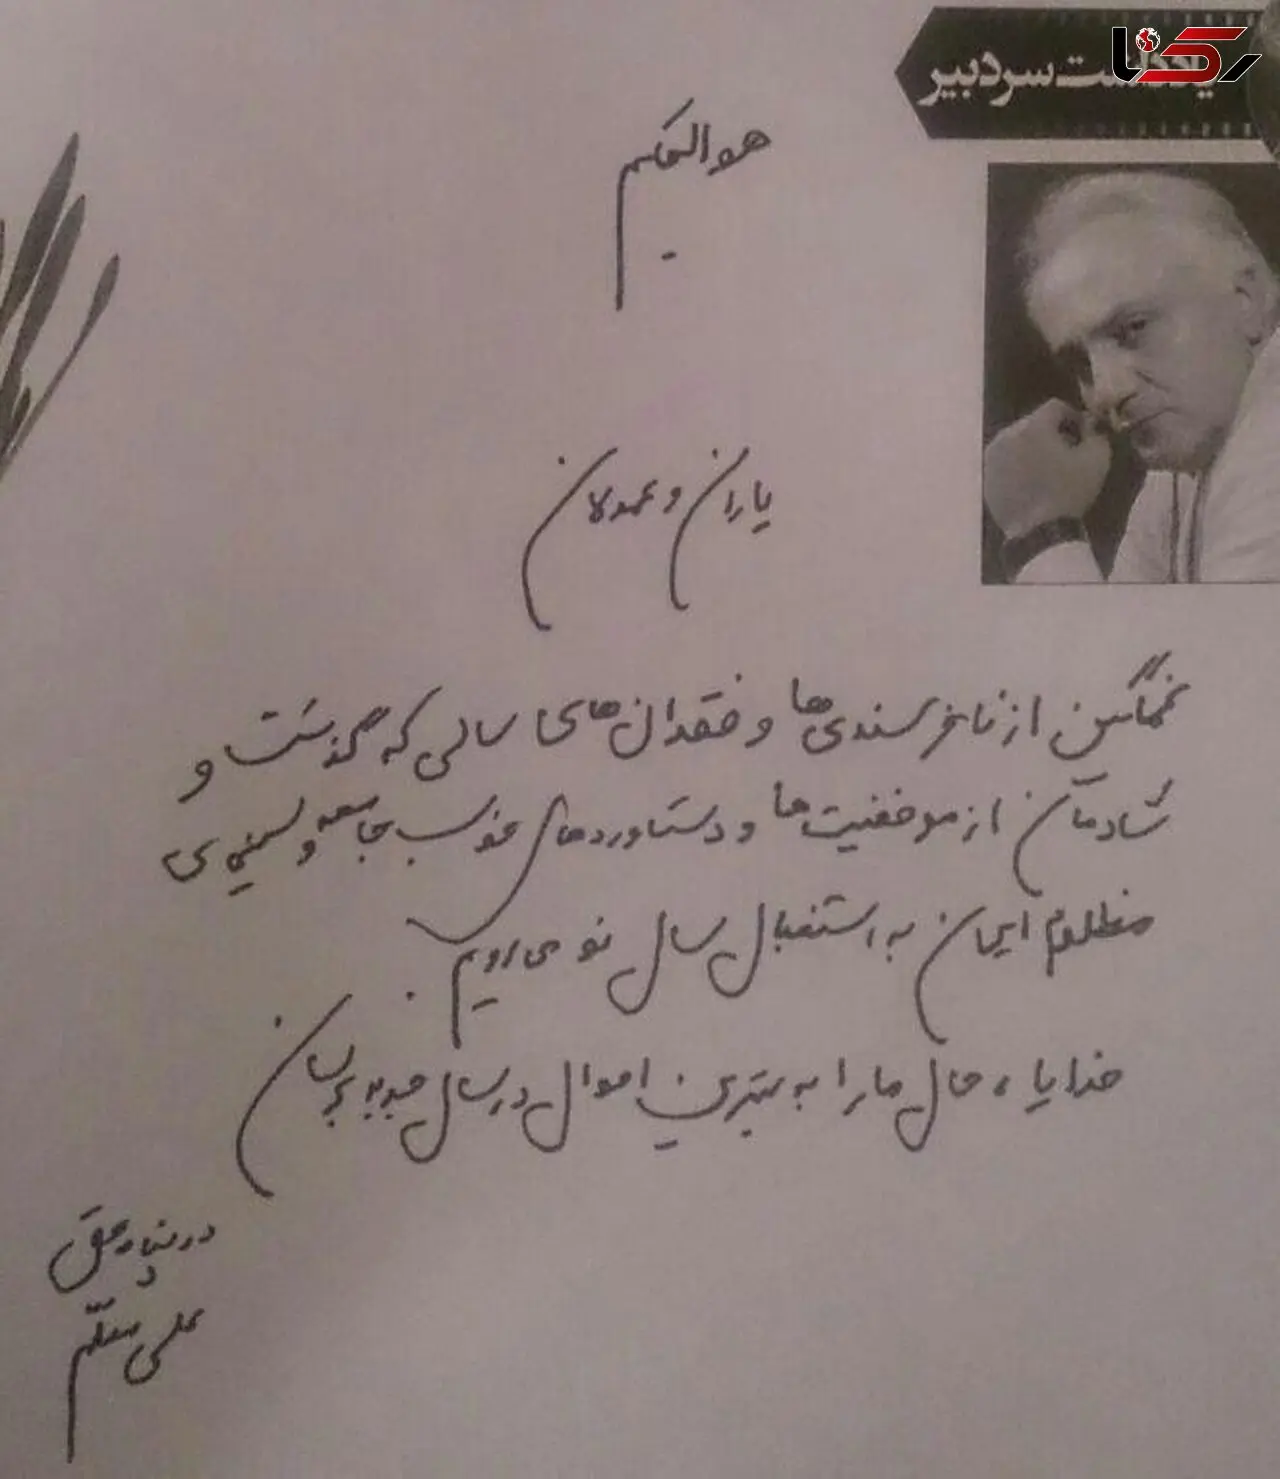 رکنا
یادداشت سردبیر
هوالحکیم
یاران و همدلان
غمگین از ناخرسندی‌ها و فقدان‌های سالی که گذشت و
شادمان از موفقیت‌ها و دستاوردهای خوب جامعه و سینمای
مظلوم ایران به استقبال سال نو می‌رویم.
خدایا، حال ما را به بهترین احوال در سال جدید برسان
در پناه حق
علی معلم